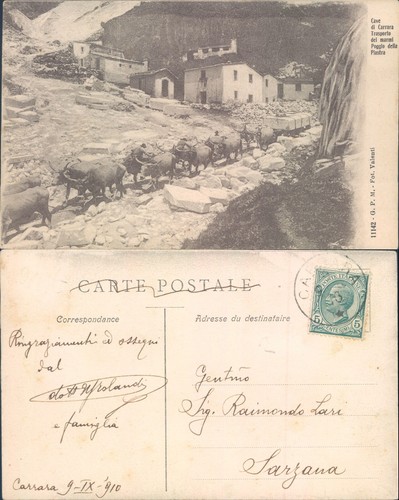 Cave
di Carrara
Trasporto
dei marmi
Poggio della
Piastra
11142 - G. P. M. - Fot. Valenti
CARTE POSTALE
Correspondance
Adresse du destinataire
Ringraziamenti ed ossequi
dal
e famiglia
Carrara 9-IX-'910
Gentmo
Sig. Raimondo Lari
Sarzana
5
5